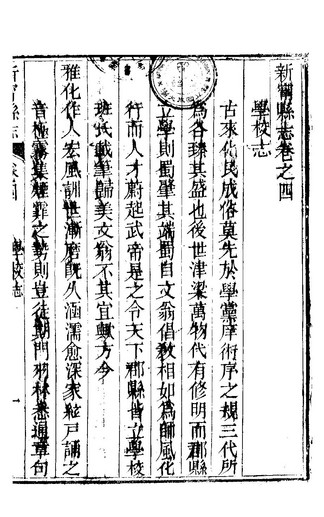 新寧縣志卷之四
學校志
古來化民成俗莫先於學黨庠術序之規三代所
為各臻其盛也後世津梁萬物代有修明而郡縣
立學則蜀肇其端蜀自文翁倡教相如為師風化
行而人才蔚起武帝是之令天下郡縣皆立學校
班氏載筆歸美文翁不其宜歟方今
雅化作人宏風訓世漸磨既久涵濡愈深家絃戶誦之
音極霧集煙霏之勢則豈徒朝門羽林悉通章句
新寧縣志
卷之四
學校志
一